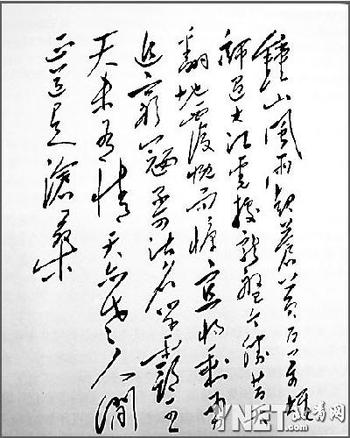 鐘山風雨起蒼黄百萬雄
師過大江虎踞龍盤今勝昔天
翻地覆慨而慷宜将剩勇
追窮寇不可沽名學霸王
天若有情天亦老人间
正道是滄桑
YNET.com 北青网